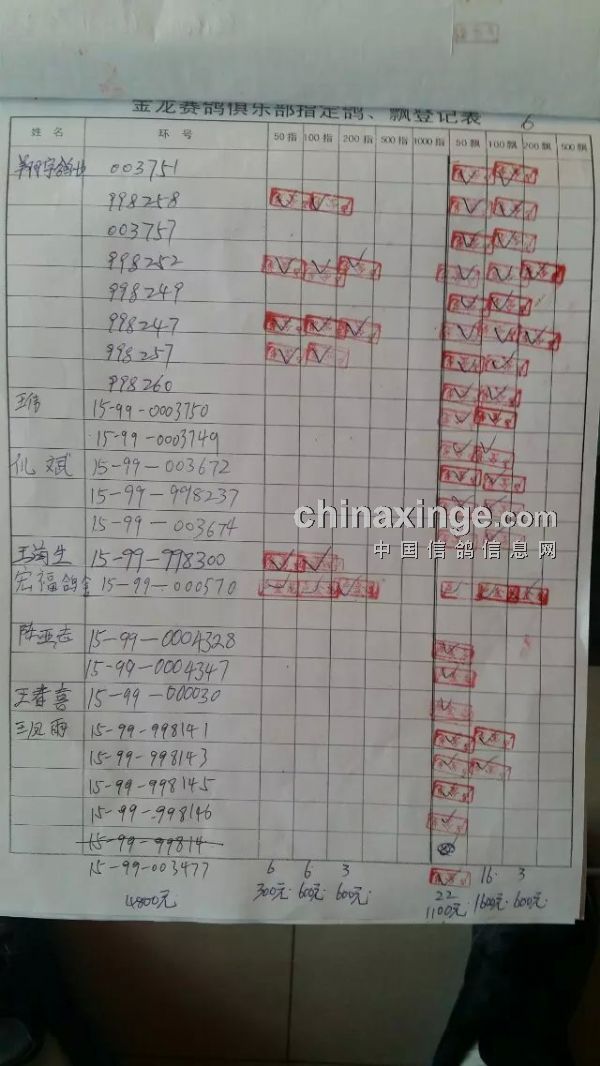 金龙赛鸽俱乐部指定鸽、飘登记表 6
姓名 环号 50指 100指 200指 500指 1000指 50飘 100飘 200飘 500飘
翔宇鸽业 003751
998258
003757
998252
998249
998247
998257
998260
王伟 15-99-0003750
15-99-0003749
仉斌 15-99-003672
15-99-998237
15-99-003674
chinaxinge.com
中国信鸽信息网
15-99-998300
宏福鸽舍 15-99-000570
陈亚志 15-99-0004328
15-99-0004347
王春喜 15-99-000030
王凤雨 15-99-998141
15-99-998143
15-99-998145
15-99-998146
15-99-99814
15-99-003477 6 6 3 16 3
22
4800元 300元 600元 600元 1100元 1600元 600元